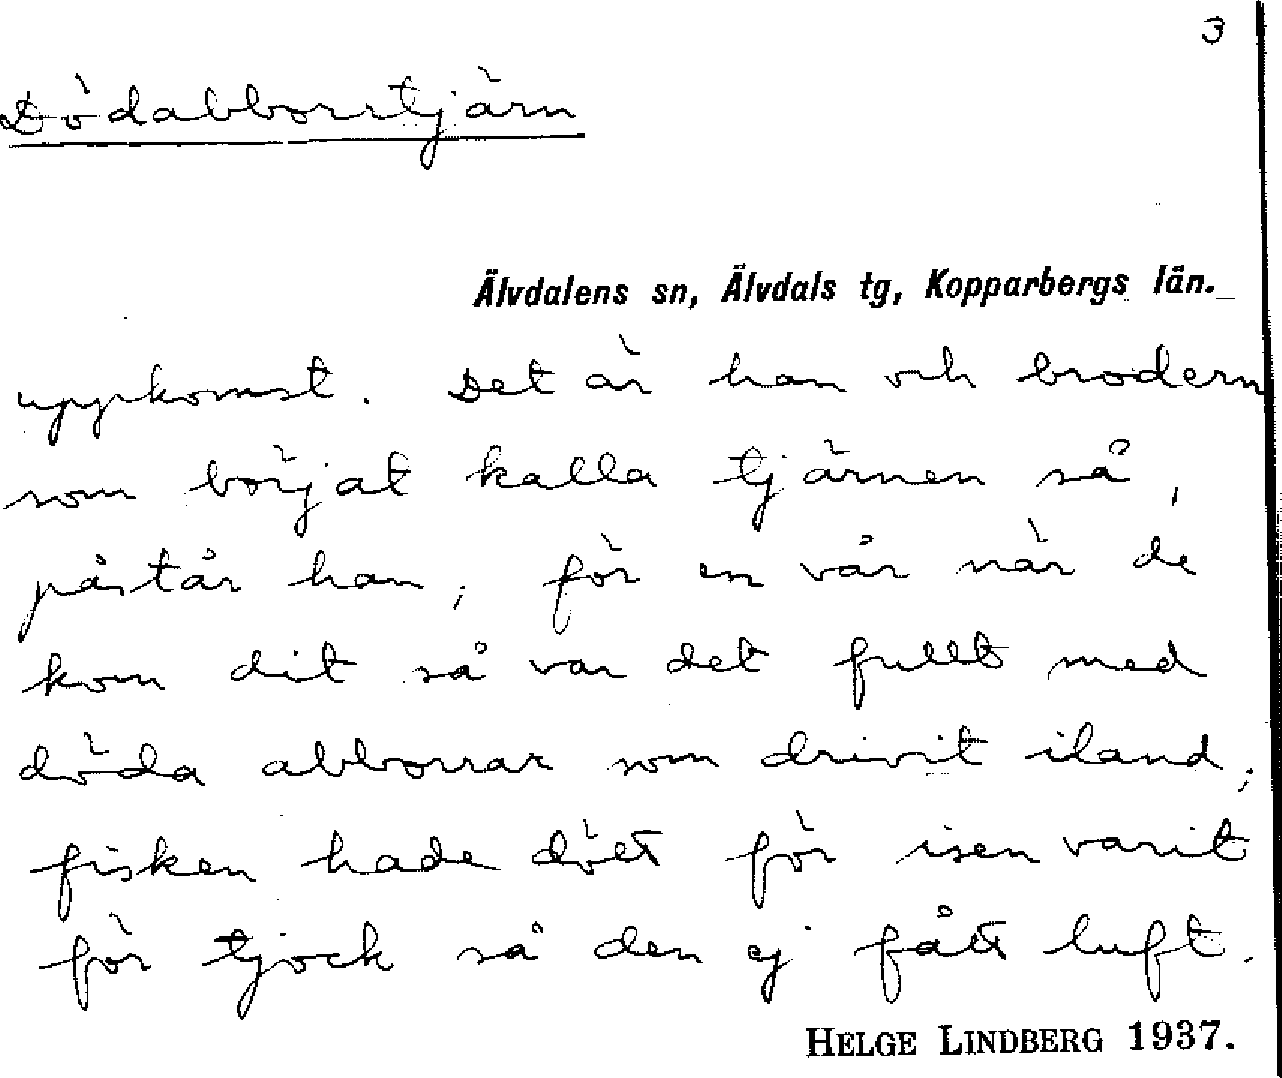 3
Dödabborrtjärn
Älvdalens sn, Älvdals tg, Kopparbergs län.
uppkomst. Det är han och brodern
som börjat kalla tjärnen så,
påstår han, för en vår när de
kom dit så var det fullt med
döda abborrar som drivit iland,
fisken hade dött för isen varit
för tjock så den ej fått luft.
HELGE LINDBERG 1937.